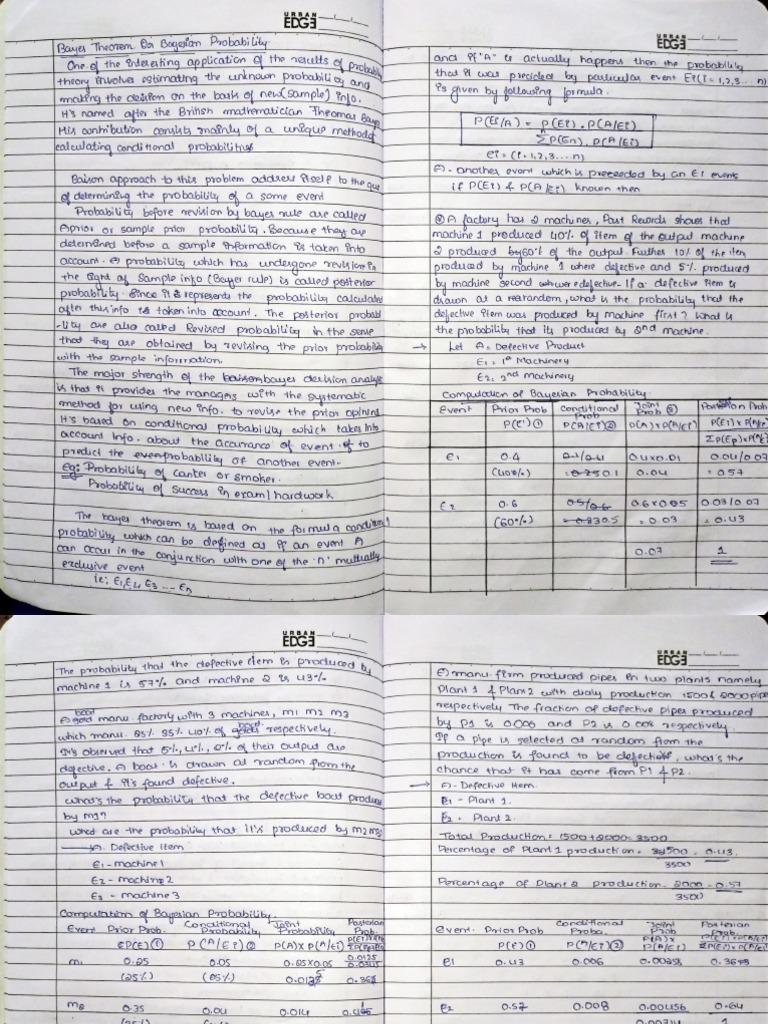 URBAN EDGE
Bayes Theorem Or Bayesian Probability
One of the interesting application of the results of probability
theory involves estimating the unknown probabilities and
making the decision on the basis of new (sample) info.
It's named after the British mathematician Theomas Bayes
His contribution consists mainly of a unique method of
calculating conditional probabilities
Baison approach to this problem address itself to the que
of determining the probability of a some event
Probability before revision by bayes rule are called
A prior or sample prior probability. Because they are
determined before a sample information is taken into
account. A probability which has undergone revision in
the light of sample info (Bayer rule) is called posterior
probability. Since it represents the probability calculated
after this info is taken into account. The posterior probabi
-lity are also called Revised probability in the sense
that they are obtained by revising the prior probability
with the sample information.
The major strength of the baison bayer decision analysis
is that it provides the managers with the systematic
method for using new info. to revise the prior opinion
It's based on conditional probability which takes into
account info. about the accurance of event of to
predict the even probability of another event.
eg: Probability of canter or smoker.
Probability of success in exam / hardwork
The bayes theorem is based on the formula conditional
probability which can be defined as if an event A
can occur in the conjunction with one of the 'n' mutually
exclusive event
ie; E1, E2, E3 --- En
URBAN EDGE
and if "A" is actually happens then the probability
that it was precided by particular event Ei (i = 1,2,3 ... n)
is given by following formula.
P(Ei/A) = P(Ei) . P(A/Ei)
Σ P(En) . P(A/Ei)
ei = (i = 1,2,3 .... n)
A - another event which is preceeded by an Ei events
if P(Ei) & P(A/Ei) known then
A factory has 2 machines, Past Rewords shows that
machine 1 produced 40% of item of the output machine
2 produced by 60% of the output. Further 10% of the item
produced by machine 1 where defective and 5% produced
by machine second were defective. If a defective item is
drawn at random, what is the probability that the
defective item was produced by machine first? What is
the probability that its produced by 2nd machine.
→ Let A = Defective Product
E1 = 1st Machinery
E2 = 2nd machinery
Computation of Bayesian Probability
Event Prior Prob Conditional Prob Joint Prob ③ Posterior Prob
P(Ei) ① P(A/Ei) ② P(A) x P(A/Ei) P(Ei) x P(A/Ei)
E1 0.4 0.4x0.01 0.04/0.07
(40%) 0.1 0.04 = 0.57
E2 0.6 0.6x0.05 0.03/0.07
(60%) 0.5 = 0.03 = 0.43
0.07 1
URBAN EDGE
The probability that the defective item is produced by
machine 1 is 57% and machine 2 is 43%
A boat manu factory with 3 machines, m1 m2 m3
which manu. 25% 35% 40% of boat respectively.
It's observed that 5%, 4%, 2% of their output are
defective. A boat is drawn at random from the
output & it's found defective.
what's the probability that the defective boat produce
by m1?
what are the probability that it's produced by m2 m3?
→ A - Defective Item
E1 - machine 1
E2 - machine 2
E3 - machine 3
Computation of Bayesian Probability.
Event Prior Prob. Conditional Probability Joint Probability Posterior Prob.
P(E) ① P(A/Ei) ② P(A) x P(A/Ei)
m1 0.25 0.05 0.25x0.05 0.0125
(25%) (05%) 0.0125
m2 0.35 0.04 0.014
(25%)
URBAN EDGE
A) manu. firm produced pipes in two plants namely
Plant 1 & Plan 2 with dialy production 1500 & 2000 pipes
respectively. The fraction of defective pipes produced
by P1 is 0.006 and P2 is 0.008 respectively.
If a pipe is selected at random from the
production is found to be defective, what's the
chance that it has come from P1 & P2.
→ A - Defective Item.
E1 - Plant 1.
E2 = Plant 2.
Total Production = 1500 + 2000 = 3500
Percentage of Plant 1 production = 0.43
3500
Percentage of Plant 2 production = 2000 = 0.57
3500
Event Prior Prob Conditional Proba. Joint Prob Posterian Prob.
P(E) ① P(A/Ei) ② P(A) x P(A/Ei)
e1 0.43 0.006 0.00258
e2 0.57 0.008 0.00456 0.64
0.00714 1